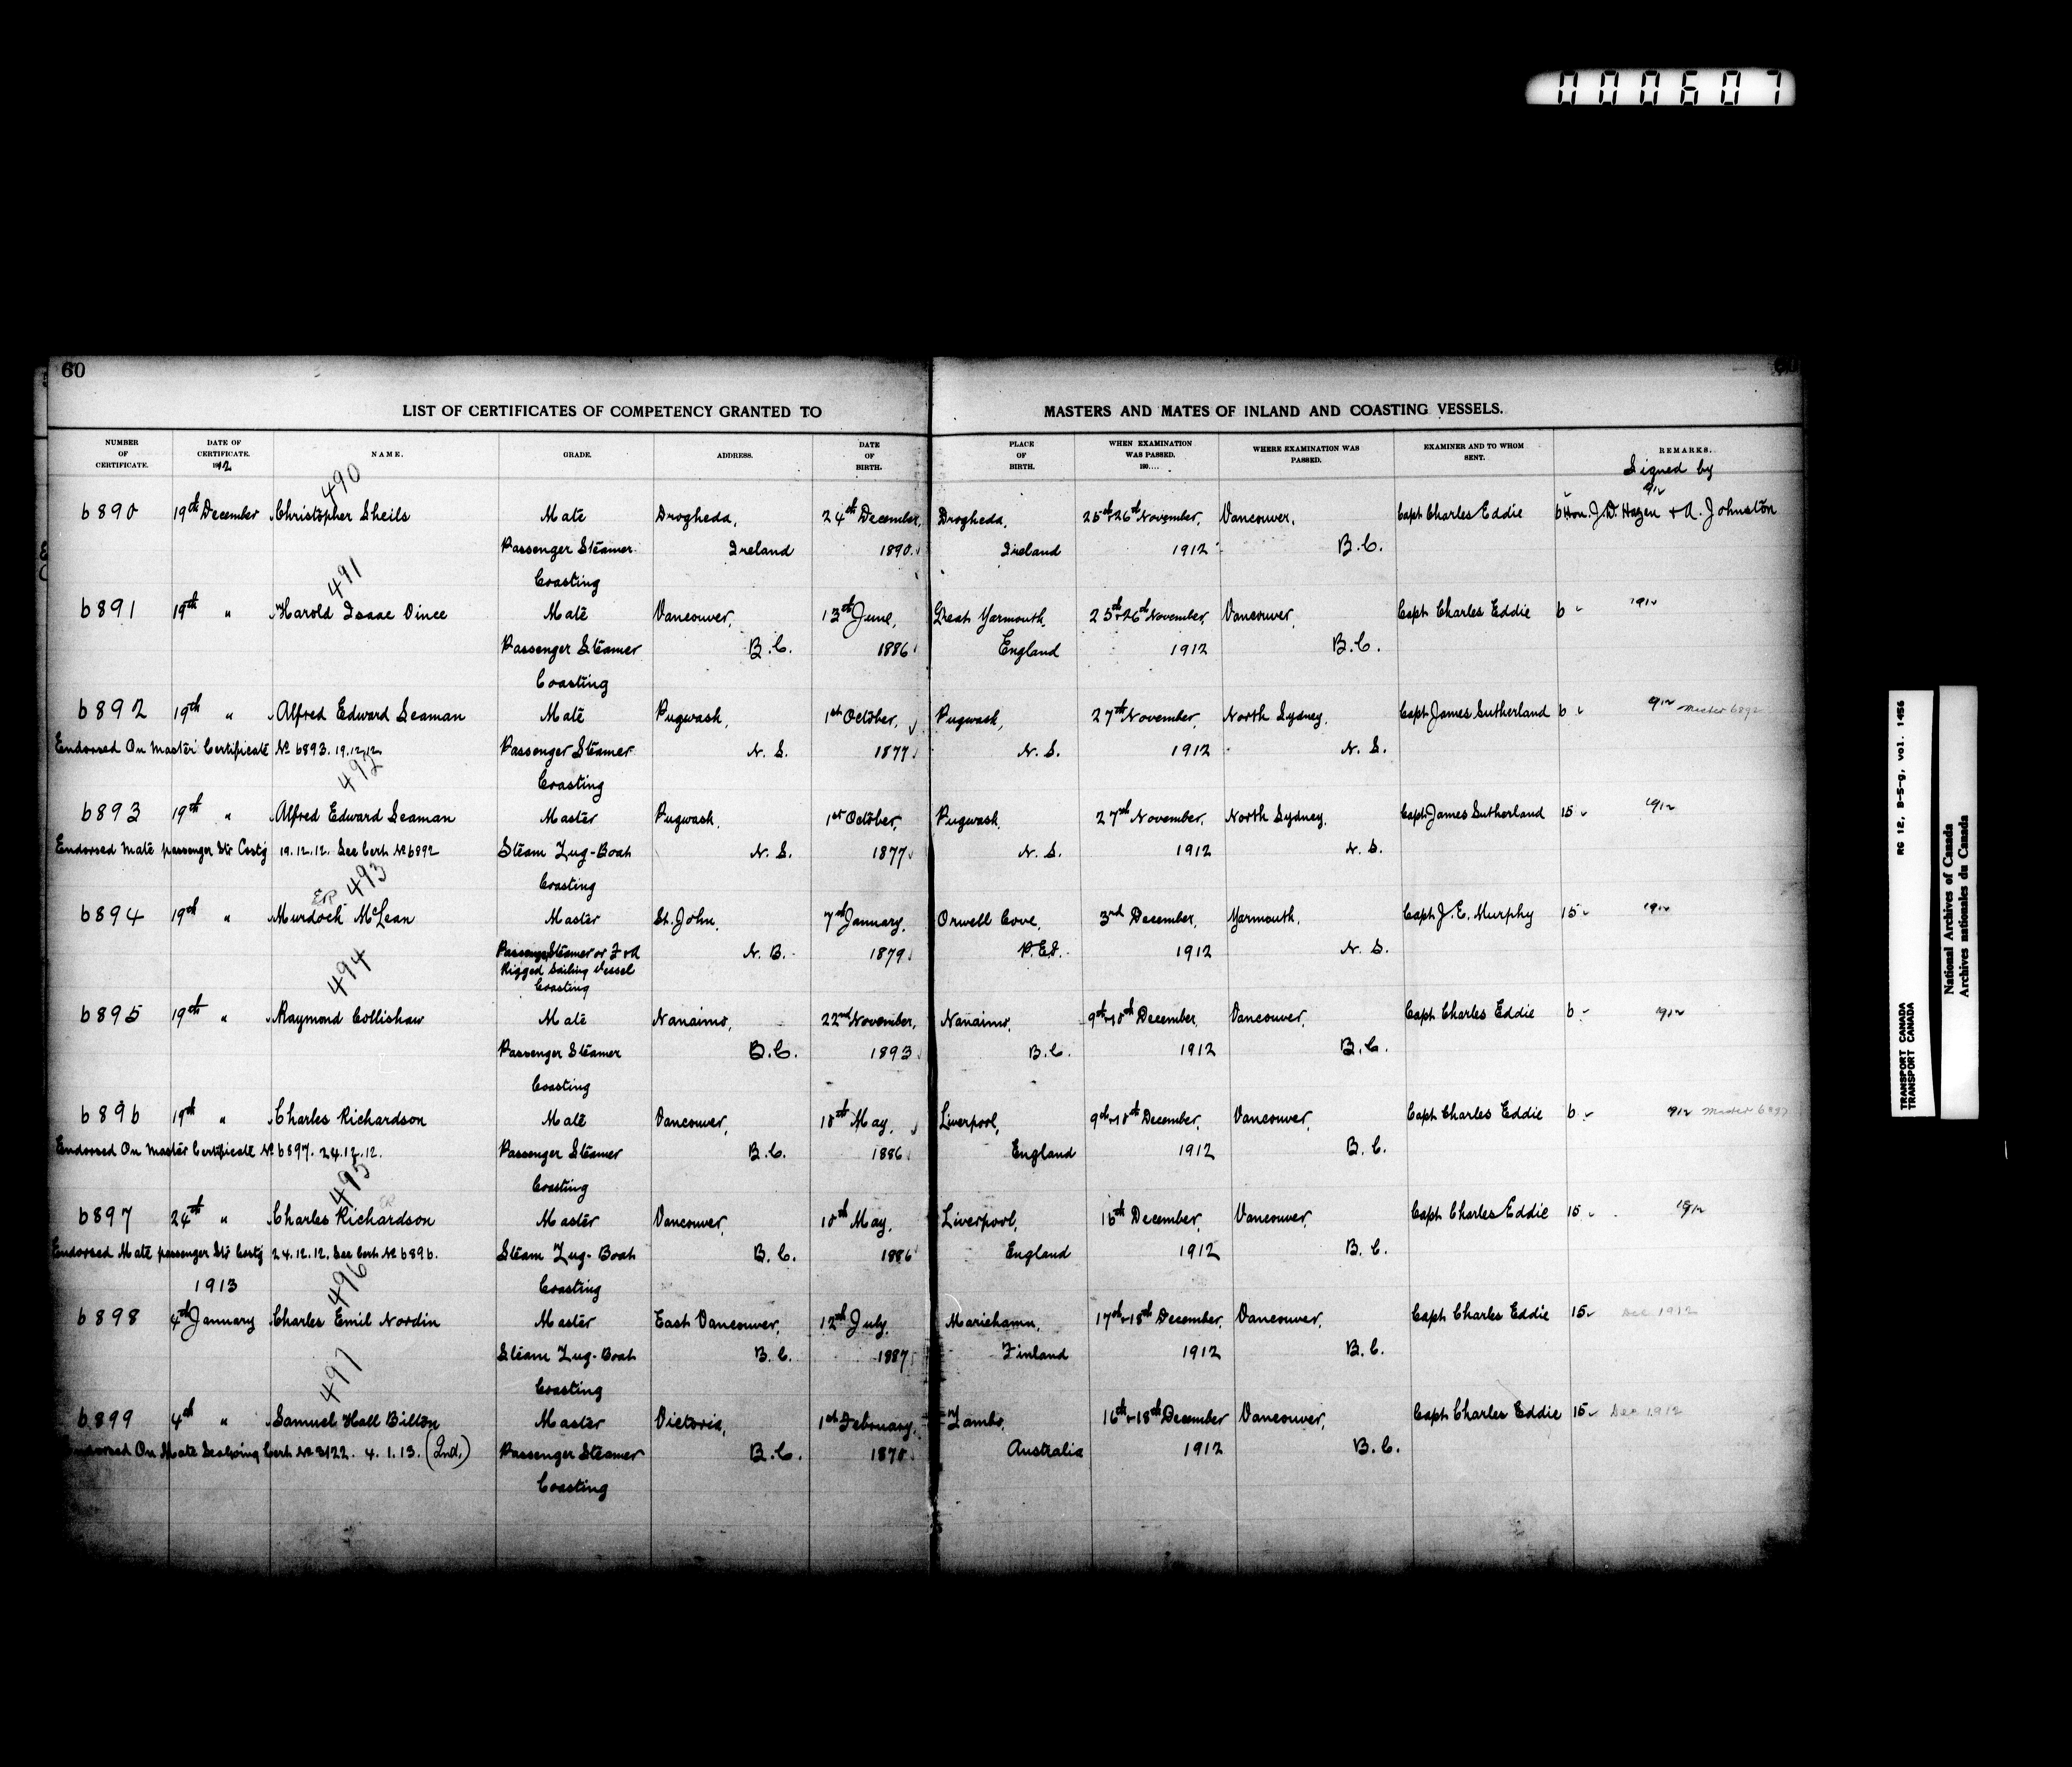 000607
60
LIST OF CERTIFICATES OF COMPETENCY GRANTED TO MASTERS AND MATES OF INLAND AND COASTING VESSELS.
NUMBER OF CERTIFICATE. DATE OF CERTIFICATE. 1912 NAME. GRADE. ADDRESS. DATE OF BIRTH. PLACE OF BIRTH. WHEN EXAMINATION WAS PASSED. 190.... WHERE EXAMINATION WAS PASSED. EXAMINER AND TO WHOM SENT. REMARKS.
Signed by
490
6890 19th December Christopher Sheils Mate Drogheda, 24th December, Drogheda, 25th+26th November, Vancouver, Capt Charles Eddie 6 Hon. J.D. Hazen + A. Johnston
Passenger Steamer Ireland 1890. Ireland 1912 B.C.
Coasting
491
6891 19th " Harold Isaac Vince Mate Vancouver, 13th June, Great Yarmouth, 25th+26th November, Vancouver, Capt Charles Eddie 6 1912
Passenger Steamer B.C. 1886 England 1912 B.C.
Coasting
6892 19th " Alfred Edward Seaman Mate Pugwash, 1st October, Pugwash, 27th November, North Sydney, Capt James Sutherland 6 1912 Master 6892
Endorsed On Master Certificate No 6893. 19.12.12 Passenger Steamer N. S. 1877 N. S. 1912 N. S.
Coasting
492
6893 19th " Alfred Edward Seaman Master Pugwash, 1st October, Pugwash, 27th November, North Sydney, Capt James Sutherland 15 1912
Endorsed Mate passenger Str Coastg 19.12.12. See Cert No 6892 Steam Tug-Boat N. S. 1877 N. S. 1912 N. S.
Coasting
493
6894 19th " Murdoch McLean Master St. John, 7th January, Orwell Cove, 3rd December, Yarmouth, Capt J. E. Murphy 15 1912
Passenger Steamer or F + A N. B. 1879 P.E.I. 1912 N. S.
Rigged Sailing Vessel
Coasting
494
6895 19th " Raymond Collishaw Mate Nanaimo, 22nd November, Nanaimo, 9th+10th December, Vancouver, Capt Charles Eddie 6 1912
Passenger Steamer B.C. 1893 B.C. 1912 B.C.
Coasting
6896 19th " Charles Richardson Mate Vancouver, 10th May, Liverpool, 9th+10th December, Vancouver, Capt Charles Eddie 6 1912 Master 6897
Endorsed On Master Certificate No 6897. 24.12.12. Passenger Steamer B.C. 1886 England 1912 B.C.
Coasting
495
6897 24th " Charles Richardson Master Vancouver, 10th May, Liverpool, 16th December, Vancouver, Capt Charles Eddie 15 1912
Endorsed Mate passenger Str Coastg 24.12.12. See Cert No 6896. Steam Tug-Boat B.C. 1886 England 1912 B.C.
1913 Coasting
496
6898 4th January Charles Emil Nordin Master East Vancouver, 12th July, Mariehamn, 17th+18th December, Vancouver, Capt Charles Eddie 15 Dec 1912
Steam Tug-Boat B.C. 1887 Finland 1912 B.C.
Coasting
497
6899 4th " Samuel Hall Bilton Master Victoria, 1st February, Lambo, 16th+18th December Vancouver, Capt Charles Eddie 15 Dec 1912
Endorsed On Mate Seagoing Cert No 3122. 4. 1. 13. (2nd.) Passenger Steamer B.C. 1870 Australia 1912 B.C.
Coasting
TRANSPORT CANADA RG 12, B-5-g, vol. 1456
TRANSPORT CANADA
National Archives of Canada
Archives nationales du Canada